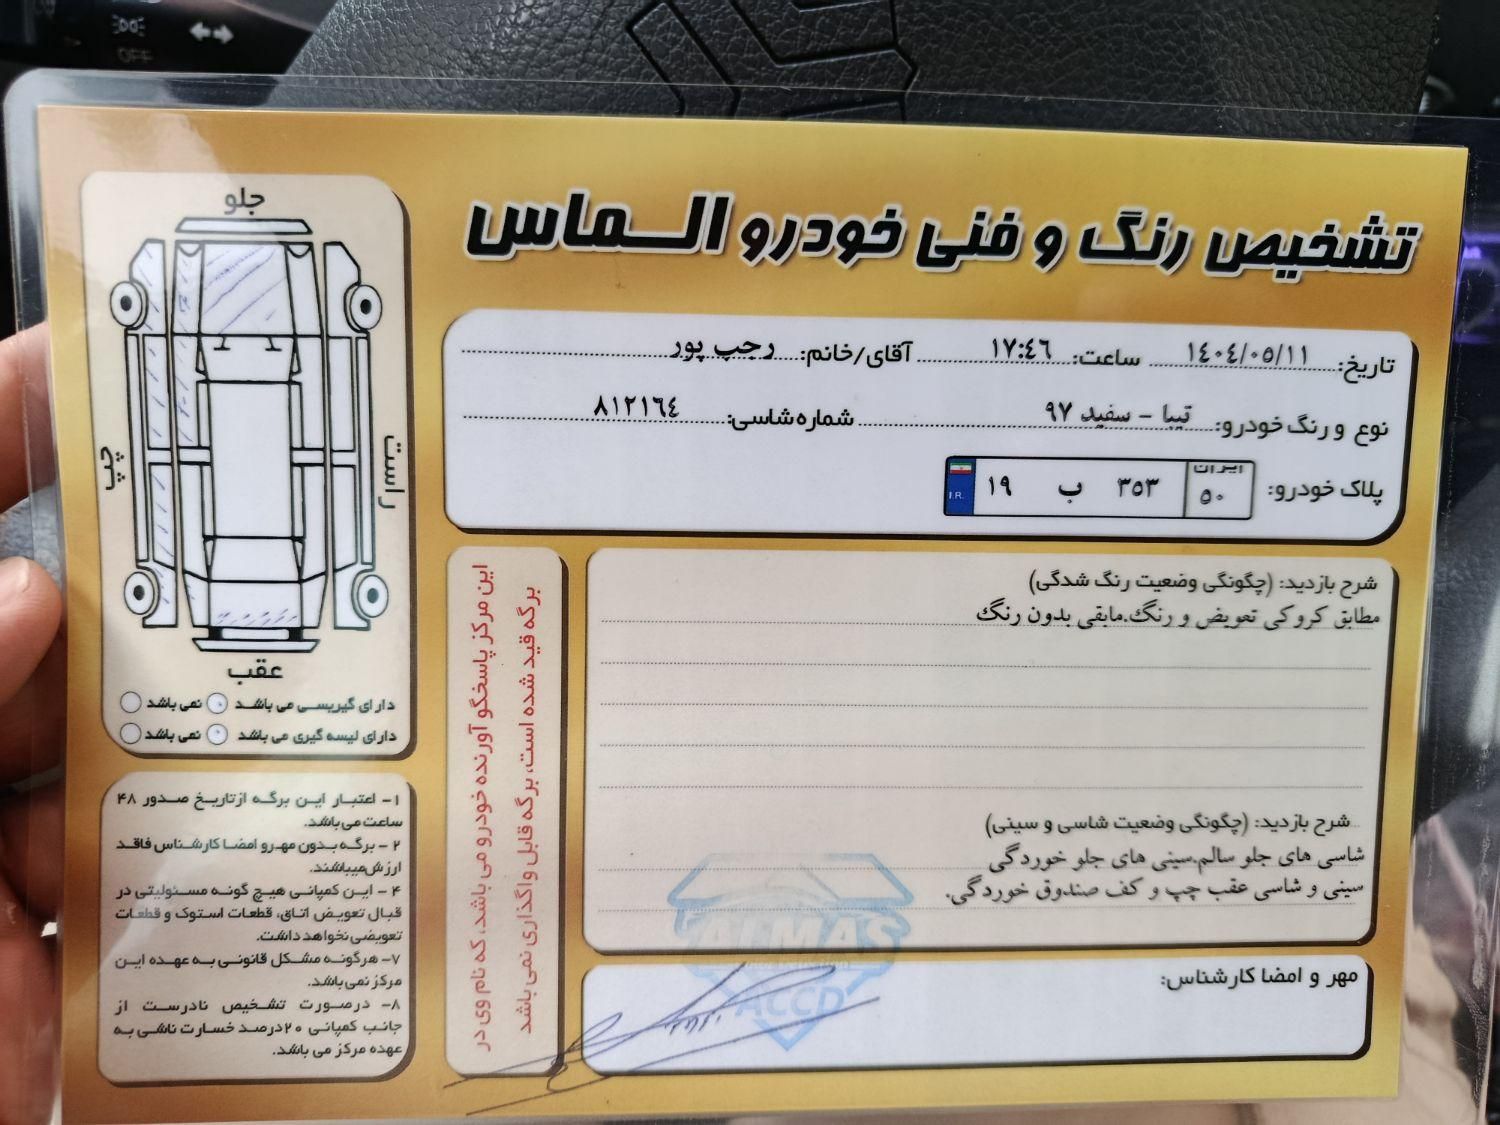 OFF
تشخیص رنگ و فنی خودرو الماس
تاریخ: ۱٤۰٤/۰٥/۱۱ ساعت: ۱۷:٤٦ آقای/خانم: رجب پور
نوع و رنگ خودرو: تیبا - سفید ۹۷ شماره شاسی: ۸۱۲۱٦٤
پلاک خودرو: ایران ۵۰ ۳۵۳ ب ۱۹
I.R.
شرح بازدید: (چگونگی وضعیت رنگ شدگی)
مطابق کروکی تعویض و رنگ.مابقی بدون رنگ
شرح بازدید: (چگونگی وضعیت شاسی و سینی)
شاسی های جلو سالم.سینی های جلو خوردگی
سینی و شاسی عقب چپ و کف صندوق خوردگی.
مهر و امضا کارشناس:
ALMAS
ACCD
این مرکز پاسخگو آورنده خودرو می باشد، که نام وی در
برگه قید شده است، برگه قابل واگذاری نمی باشد
جلو
چپ
راست
عقب
دارای گیربسی می باشد نمی باشد
دارای لیسه گیری می باشد نمی باشد
۱- اعتبار این برگه از تاریخ صدور ۴۸
ساعت می باشد.
۲ - برگه بدون مهر و امضا کارشناس فاقد
ارزش میباشند.
۴ - این کمپانی هیچ گونه مسئولیتی در
قبال تعویض اتاق، قطعات استوک و قطعات
تعویضی نخواهد داشت.
۷- هرگونه مشکل قانونی به عهده این
مرکز نمی باشد.
۸- درصورت تشخیص نادرست از
جانب کمپانی ۲۰درصد خسارت ناشی به
عهده مرکز می باشد.